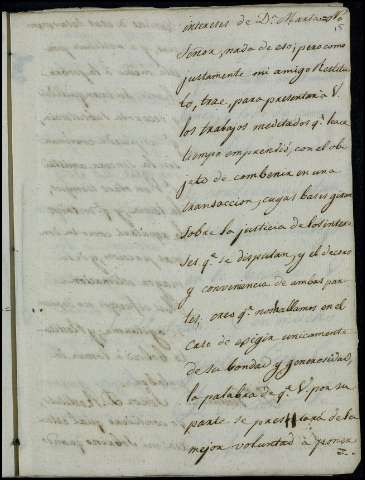 intereses de Dⁿ Mariano
Señor, nada de eso; pero como
justamente mi amigo Restitu-
to, trae, para presentar á V.
los trabajos meditados qᵉ hace
tiempo emprendió, con el ob-
jeto de combenir en una
transaccion, cuyas bases giran
sobre la justicia de los intere-
ses qᵉ se disputan, y el decoro
y conveniencia de ambas par-
tes, creo qᵉ nos hallamos en el
caso de exigir unicamente
de su bondad y generosidad,
la palabra de qᵉ V. por su
parte se prestará de la
mejor voluntad à poner